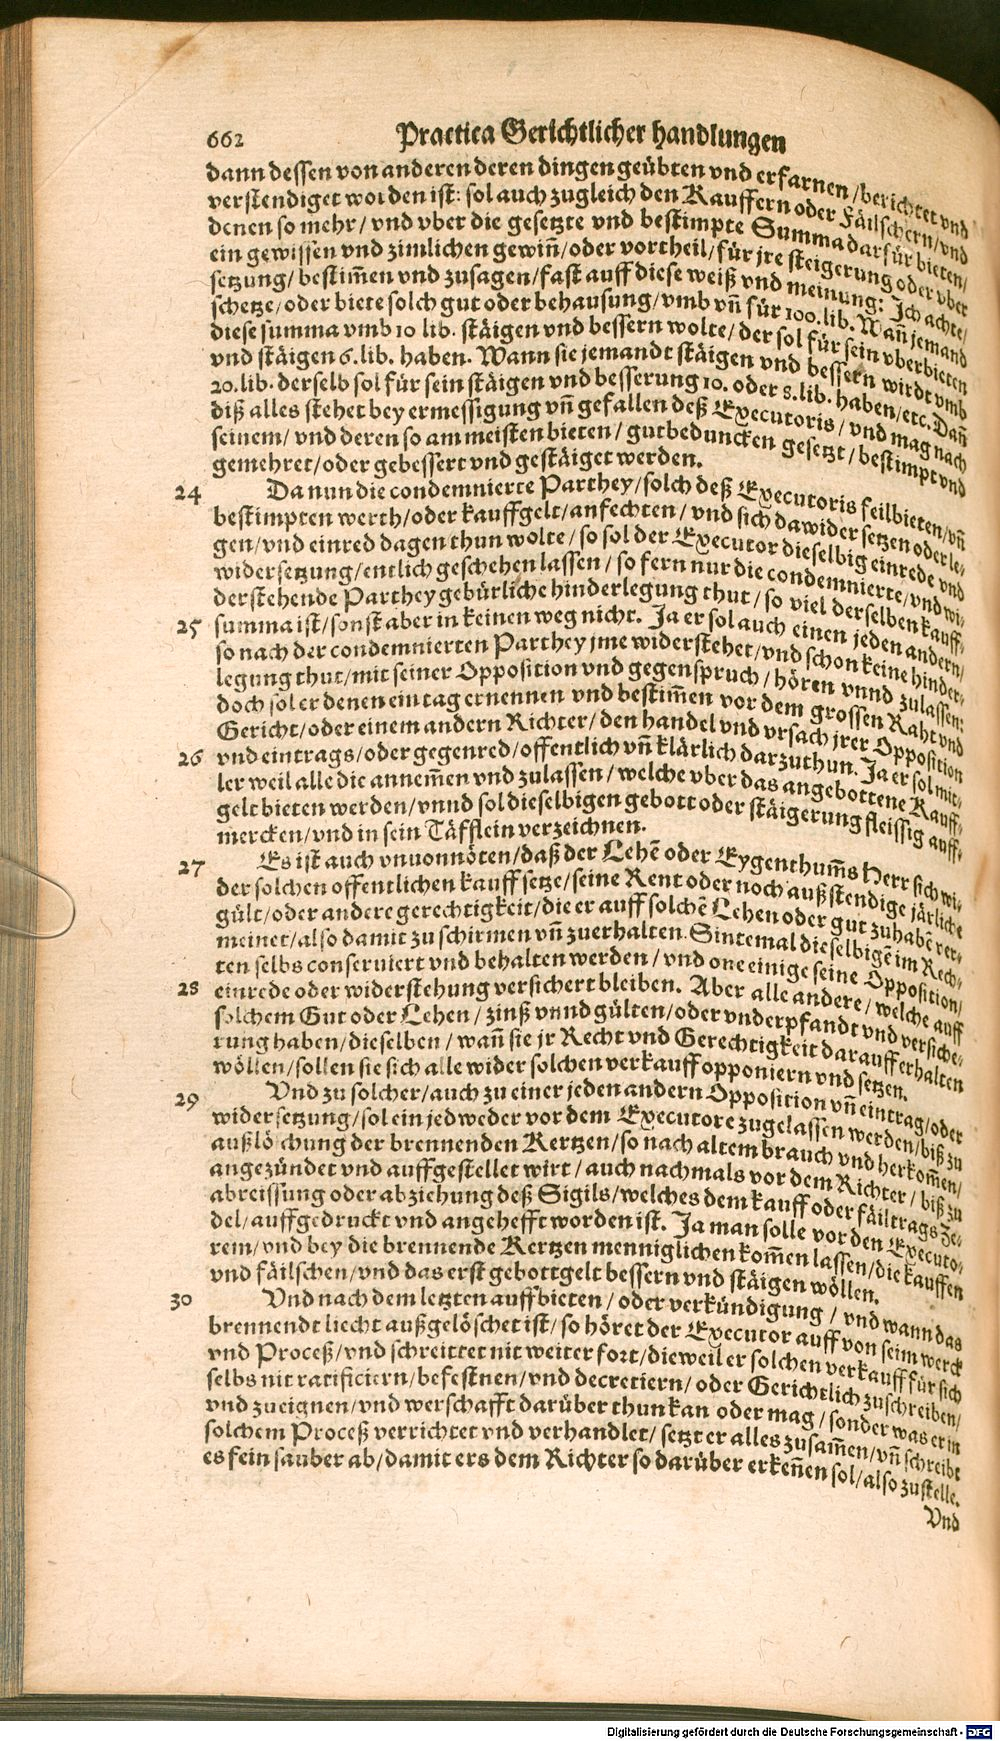 662 Practica Gerichtlicher handlungen
dann dessen von anderen deren dingen geübten vnd erfarnen / berichtet vnd
verstendiget worden ist: sol auch zugleich den Kauffern oder Fäilschern / vnd
denen so mehr / vnd vber die gesetzte vnd bestimpte Summa darfür bieten /
ein gewissen vnd zimlichen gewiñ / oder vortheil / für jre steigerung oder vber
setzung / bestim̃en vnd zusagen / fast auff diese weiß vnd meinung: Ich achte /
schetze / oder biete solch gut oder behausung / vmb vñ für 100. lib. Wañ jemand
diese summa vmb 10 lib. stäigen vnd bessern wolte / der sol für sein vberbieten
vnd stäigen 6. lib. haben. Wann sie jemandt stäigen vnd bessern wirdt vmb
20. lib. derselb sol für sein stäigen vnd besserung 10. oder 8. lib. haben / etc. Dañ
diß alles stehet bey ermessigung vñ gefallen deß Executoris / vnd mag nach
seinem / vnd deren so am meisten bieten / gutbeduncken gesetzt / bestimpt vnd
gemehret / oder gebessert vnd gestäiget werden.
24 Da nun die condemnierte Parthey / solch deß Executoris feilbieten / vñ
bestimpten werth / oder kauffgelt / anfechten / vnd sich dawider setzen oder le⸗
gen / vnd einred dagen thun wolte / so sol der Executor dieselbig einrede vnd
widersetzung / entlich geschehen lassen / so fern nur die condemnierte / vnd wi⸗
derstehende Parthey gebürliche hinderlegung thut / so viel derselben kauff⸗
25 summa ist / sonst aber in keinen weg nicht. Ja er sol auch einen jeden andern /
so nach der condemnierten Parthey jme widerstehet / vnd schon keine hinder⸗
legung thut / mit seiner Opposition vnd gegenspruch / hören vnnd zulassen:
doch sol er denen ein tag ernennen vnd bestim̃en vor dem grossen Raht vnd
Gericht / oder einem andern Richter / den handel vnd vrsach jrer Opposition
26 vnd eintrags / oder gegenred / offentlich vñ klärlich darzuthun. Ja er sol mit⸗
ler weil alle die annem̃en vnd zulassen / welche vber das angebottene Kauff⸗
gelt bieten werden / vnnd sol dieselbigen gebott oder stäigerung fleissig auff⸗
mercken / vnd in sein Täfflein verzeichnen.
27 Es ist auch vnuonnöten / daß der Lehẽ oder Eygenthum̃s Herr sich wi⸗
der solchen offentlichen kauff setze / seine Rent oder noch außstendige järliche
gült / oder andere gerechtigkeit / die er auff solchẽ Lehen oder gut zuhabẽ ver⸗
meinet / also damit zu schirmen vñ zuerhalten. Sintemal dieselbigẽ im Rech⸗
ten selbs conseruiert vnd behalten werden / vnd one einige seine Opposition /
28 einrede oder widerstehung versichert bleiben. Aber alle andere / welche auff
solchem Gut oder Lehen / zinß vnnd gülten / oder vnderpfandt vnd versiche⸗
rung haben / dieselben / wañ sie jr Recht vnd Gerechtigkeit darauff erhalten
wöllen / sollen sie sich alle wider solchen verkauff opponiern vnd setzen.
29 Vnd zu solcher / auch zu einer jeden andern Opposition vñ eintrag / oder
widersetzung / sol ein jedweder vor dem Executore zugelassen werden / biß zu
außlöschung der brennenden Kertzen / so nach altem brauch vnd herkom̃en /
angezündet vnd auffgestellet wirt / auch nachmals vor dem Richter / biß zu
abreissung oder abziehung deß Sigils / welches dem kauff oder fäiltrags Ze⸗
del / auffgedruckt vnd angehefft worden ist. Ja man solle vor den Executo⸗
rem / vnd bey die brennende Kertzen menniglichen kom̃en lassen / die kauffen
vnd fäilschen / vnd das erst gebottgelt bessern vnd stäigen wöllen.
30 Vnd nach dem letzten auffbieten / oder verkündigung / vnd wann das
brennendt liecht außgelöschet ist / so höret der Executor auff von seim werck
vnd Proceß / vnd schreittet nit weiter fort / dieweil er solchen verkauff für sich
selbs nit ratificiern / befestnen / vnd decretiern / oder Gerichtlich zuschreiben /
vnd zueignen / vnd werschafft darüber thun kan oder mag / sonder was er in
solchem Proceß verrichtet vnd verhandlet / setzt er alles zusam̃en / vñ schreibt
es fein sauber ab / damit ers dem Richter so darüber erkeñen sol / also zustelle.
Vnd
Digitalisierung gefördert durch die Deutsche Forschungsgemeinschaft - DFG